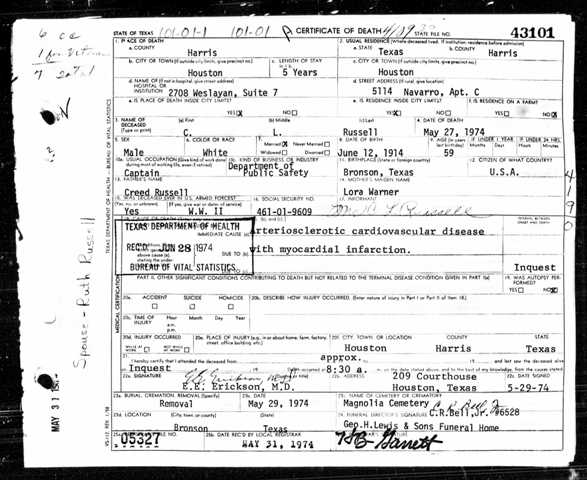 6 cc
STATE OF TEXAS 101-01-1 101-01 CERTIFICATE OF DEATH STATE FILE NO. 43101
1. PLACE OF DEATH
a. COUNTY
Harris
2. USUAL RESIDENCE (Where deceased lived. If institution, residence before admission)
a. STATE
Texas
b. COUNTY
Harris
b. CITY OR TOWN (If outside city limits, give precinct no.)
Houston
c. LENGTH OF STAY
5 Years
c. CITY OR TOWN (If outside city limits, give precinct no.)
Houston
d. NAME OF (If not in hospital, give street address)
HOSPITAL OR
INSTITUTION 2708 Weslayan, Suite 7
d. STREET ADDRESS (If rural, give location)
5114 Navarro, Apt. C
e. IS PLACE OF DEATH INSIDE CITY LIMITS?
YES NO
e. IS RESIDENCE INSIDE CITY LIMITS?
YES NO
f. IS RESIDENCE ON A FARM?
YES NO
3. NAME OF DECEASED
(a) First
C.
(b) Middle
L.
(c) Last
Russell
4. DATE OF DEATH
May 27, 1974
5. SEX
Male
6. COLOR OR RACE
White
7. Married Never Married
Widowed Divorced
8. DATE OF BIRTH
June 12, 1914
9. AGE (In years last birthday)
59
IF UNDER 1 YEAR
Months Days
IF UNDER 24 HRS.
Hours Minutes
10a. USUAL OCCUPATION (Give kind of work done during most of working life, even if retired)
Captain
10b. KIND OF BUSINESS OR INDUSTRY
Department of
Public Safety
11. BIRTHPLACE (State or foreign country)
Bronson, Texas
12. CITIZEN OF WHAT COUNTRY?
U.S.A.
13. FATHER'S NAME
Creed Russell
14. MOTHER'S MAIDEN NAME
Lora Warner
15. WAS DECEASED EVER IN U.S. ARMED FORCES?
Yes W.W. II
16. SOCIAL SECURITY NO.
461-01-9609
TEXAS DEPARTMENT OF HEALTH
REC'D JUN 28 1974
BUREAU OF VITAL STATISTICS
IMMEDIATE CAUSE
Arteriosclerotic cardiovascular disease
DUE TO
with myocardial infarction.
DUE TO
Inquest
PART II. OTHER SIGNIFICANT CONDITIONS CONTRIBUTING TO DEATH BUT NOT RELATED TO THE TERMINAL DISEASE CONDITION GIVEN IN PART I(a)
19. WAS AUTOPSY PERFORMED?
YES NO
20a. ACCIDENT SUICIDE HOMICIDE
20b. DESCRIBE HOW INJURY OCCURRED. (Enter nature of injury in Part I or Part II of item 18.)
20c. TIME OF INJURY
Hour Month Day Year
a.m.
p.m.
20d. INJURY OCCURRED
WHILE AT WORK NOT WHILE AT WORK
20e. PLACE OF INJURY (e.g., in or about home, farm, factory, street, office building, etc.)
20f. CITY, TOWN, OR LOCATION COUNTY STATE
Houston Harris Texas
21. I hereby certify that I attended the deceased from
approx.
Inquest
8:30 a.
22a. SIGNATURE
E.E. Erickson, M.D.
22b. ADDRESS
209 Courthouse
Houston, Texas
22c. DATE SIGNED
5-29-74
23a. BURIAL, CREMATION, REMOVAL (Specify)
Removal
23b. DATE
May 29, 1974
23c. NAME OF CEMETERY OR CREMATORY
Magnolia Cemetery
23d. LOCATION (City, town, or county) (State)
Bronson Texas
24. FUNERAL DIRECTOR'S SIGNATURE
C.R.Bell,Jr. #6528
Geo.H.Lewis & Sons Funeral Home
05327
25b. DATE REC'D BY LOCAL REGISTRAR
MAY 31, 1974
Garrett
Spouse - Ruth Russell
TEXAS DEPARTMENT OF HEALTH - BUREAU OF VITAL STATISTICS
MEDICAL CERTIFICATION
MAY 31
4190